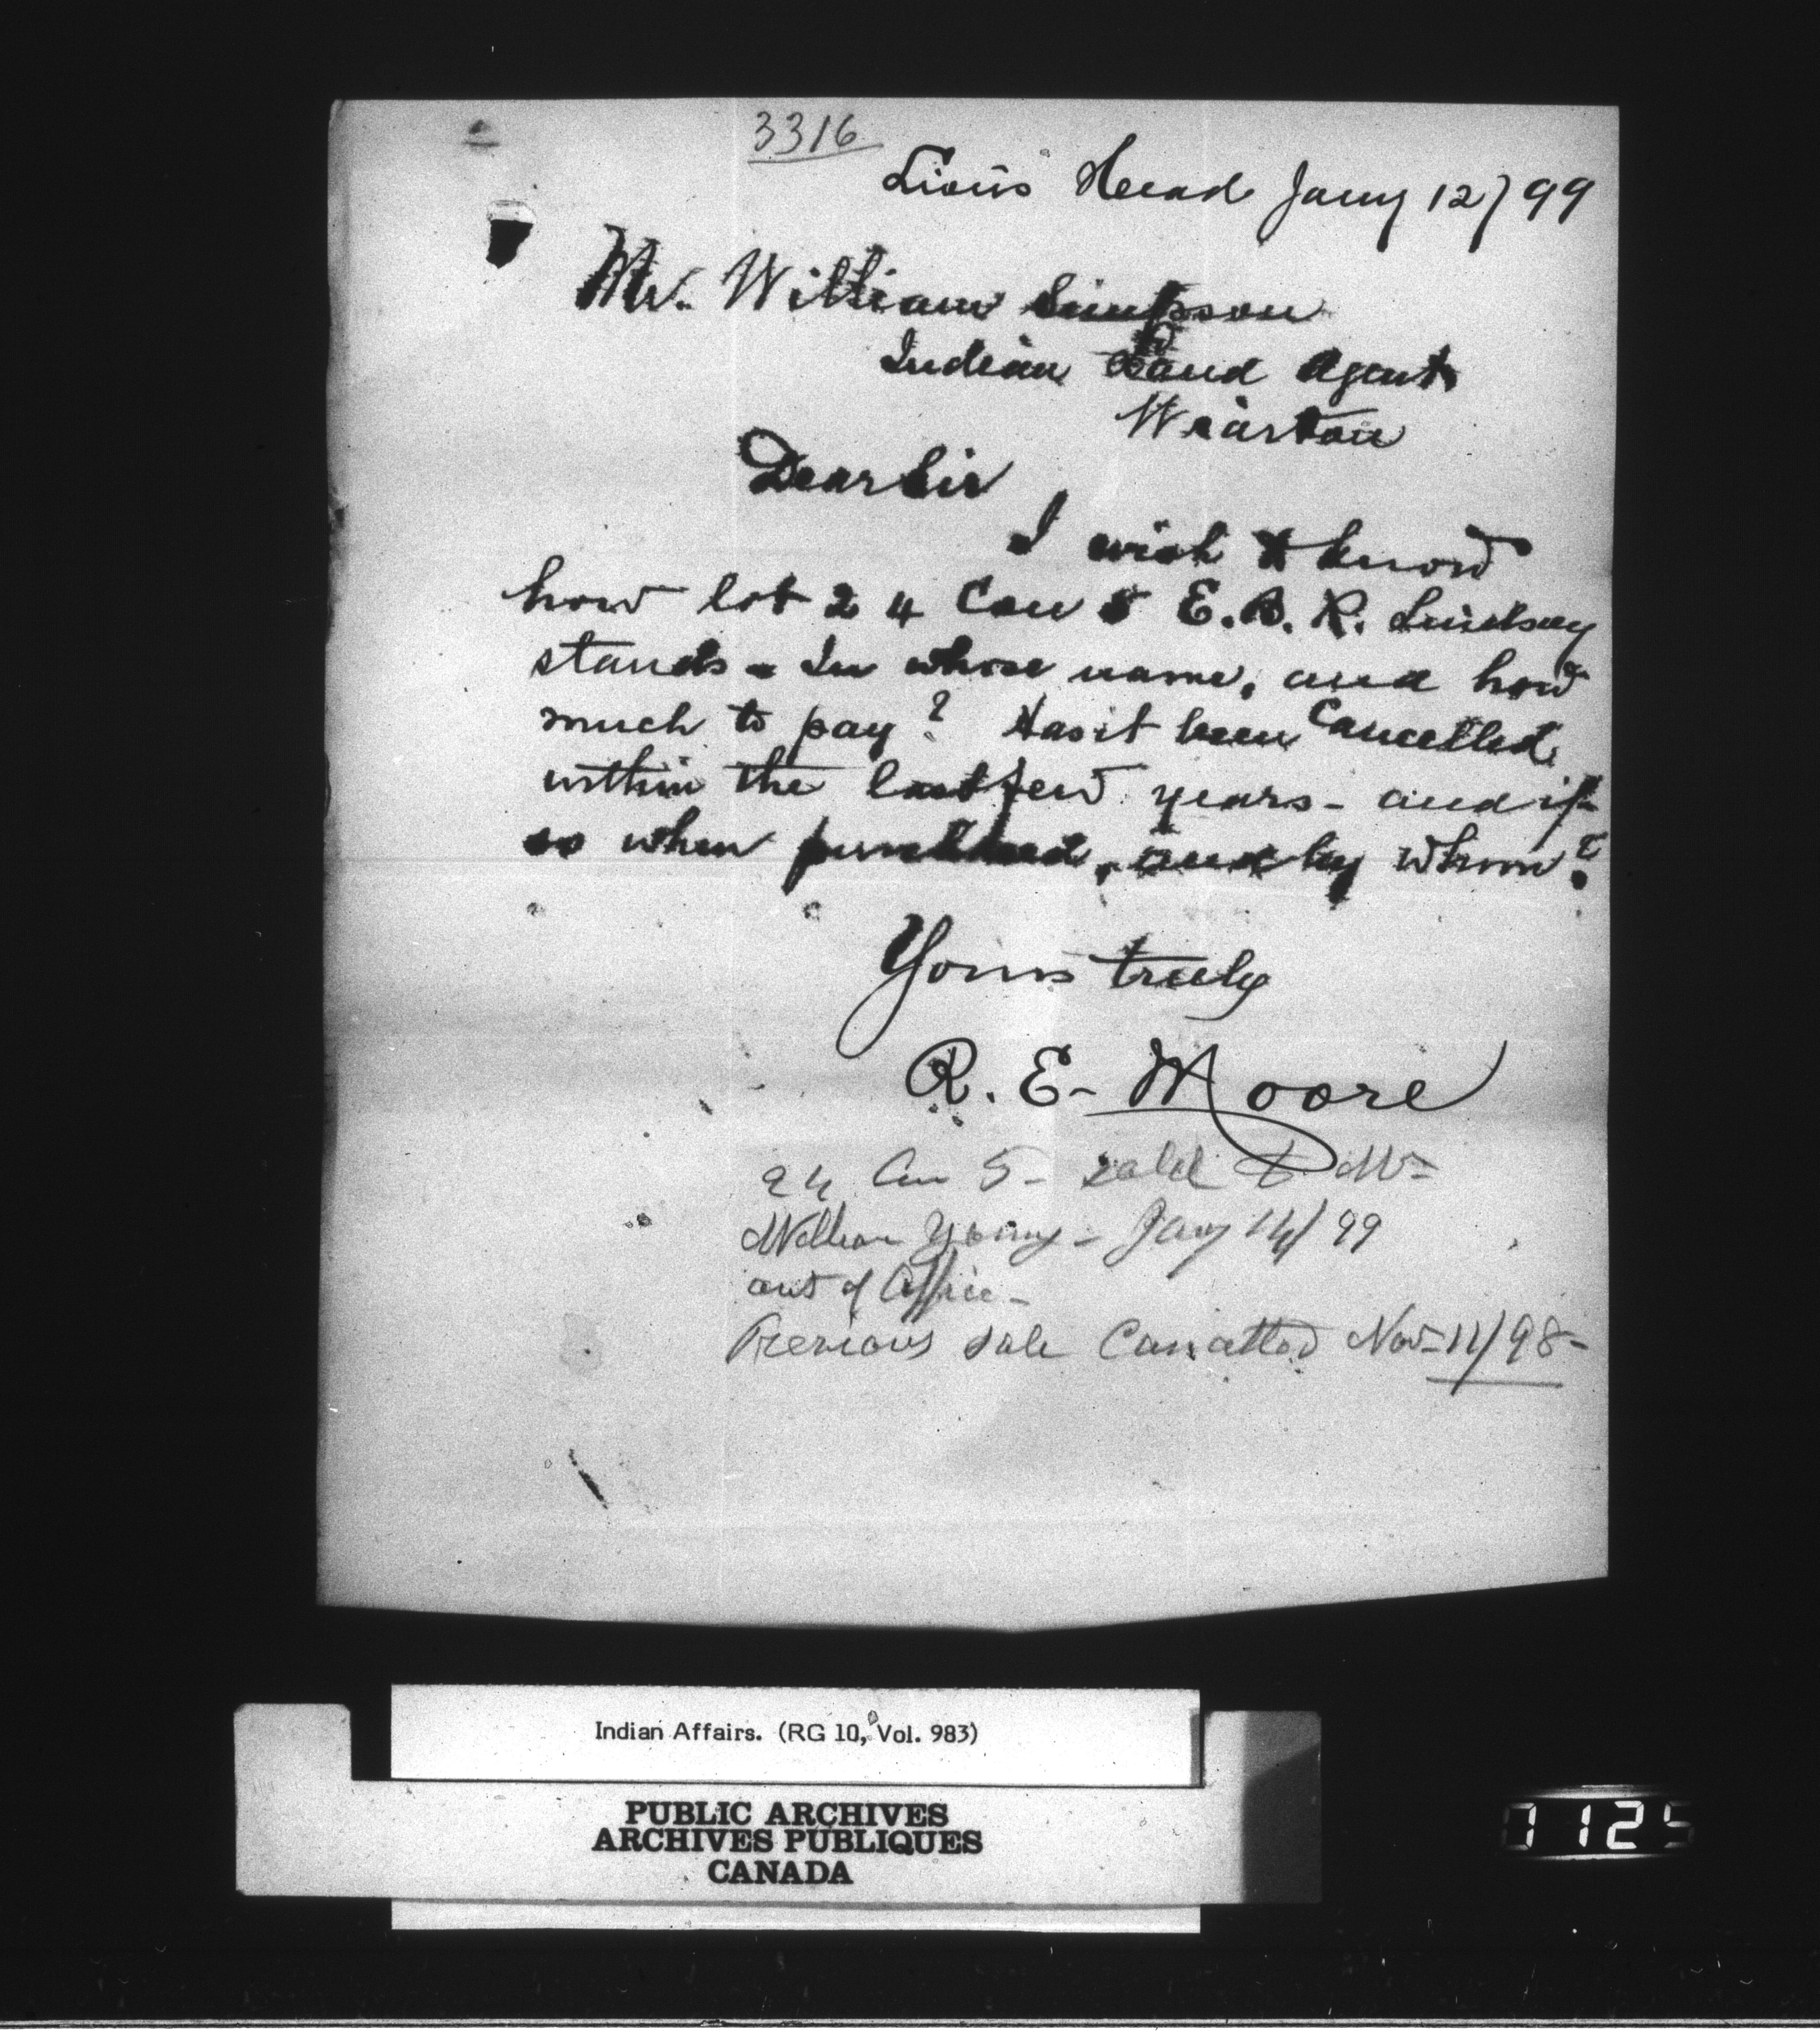 3316
Lion's Head Jany 12/99
Mr. William Simpson
Indian Land Agent
Wiarton
Dear Sir
I wish to know
how lot 24 Con 5 E.B.R. Lindsay
stands - In whose name, and how
much to pay? Has it been Cancelled
within the last few years - and if
so when purchased, and by whom?
Yours truly
R. E. Moore
24 Con 5 - sold to Mr
William Young - Jany 14/99
out of Office -
Previous sale Cancelled Nov 11/98 -
Indian Affairs. (RG 10, Vol. 983)
PUBLIC ARCHIVES
ARCHIVES PUBLIQUES
CANADA
1125